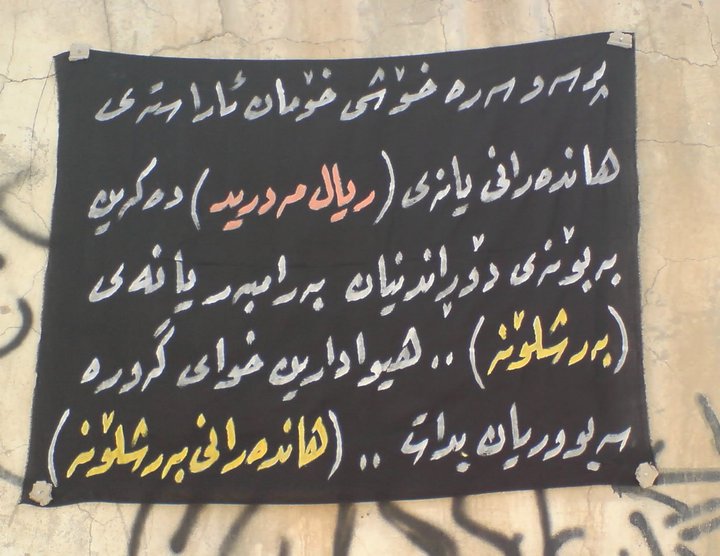 پرسە و سەرە خۆشی خۆمان ئاراستەی
هاندەرانی یانەی (ریال مەدرید) دەکەین
بەبۆنەی دۆڕاندنیان بەرامبەر یانەی
(بەرشلۆنە) .. هیوادارین خوای گەورە
سەبووریان بدات .. (هاندەرانی بەرشلۆنە)